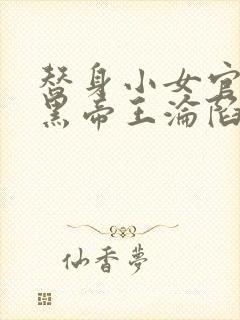 替身小女官
黑帝王淪陷
仙香夢